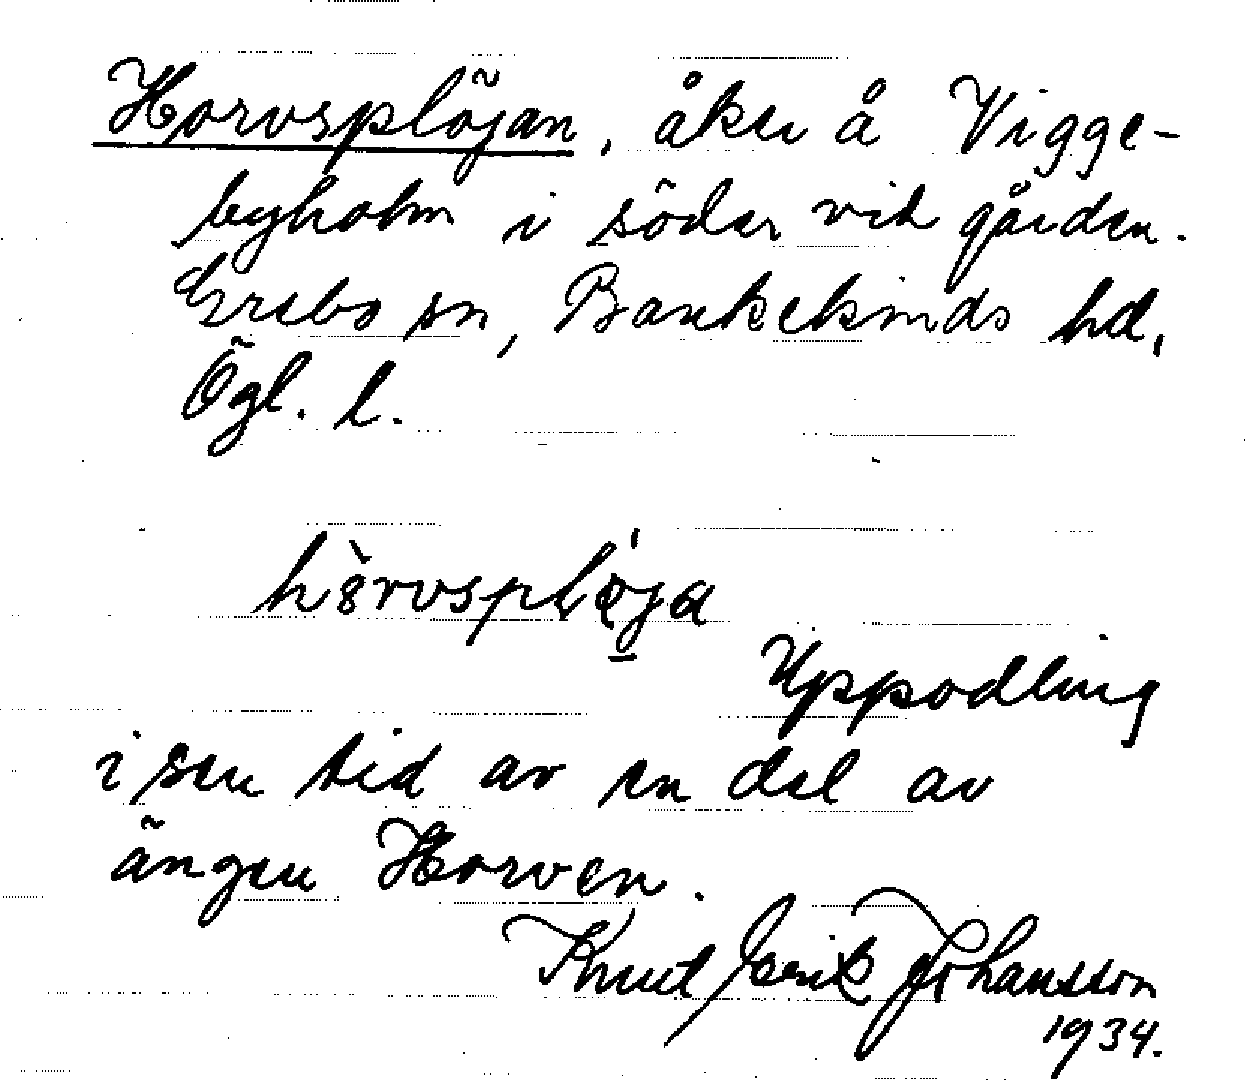 Horvsplöjan, åker å Vigge-
byholm i söder vid gården.
Grebo sn, Bankekinds hd,
Ögl. l.
hòrvspl
Uppodling
i sen tid av en del av
ängen Horven.
Knut Erik Johansson
1934.